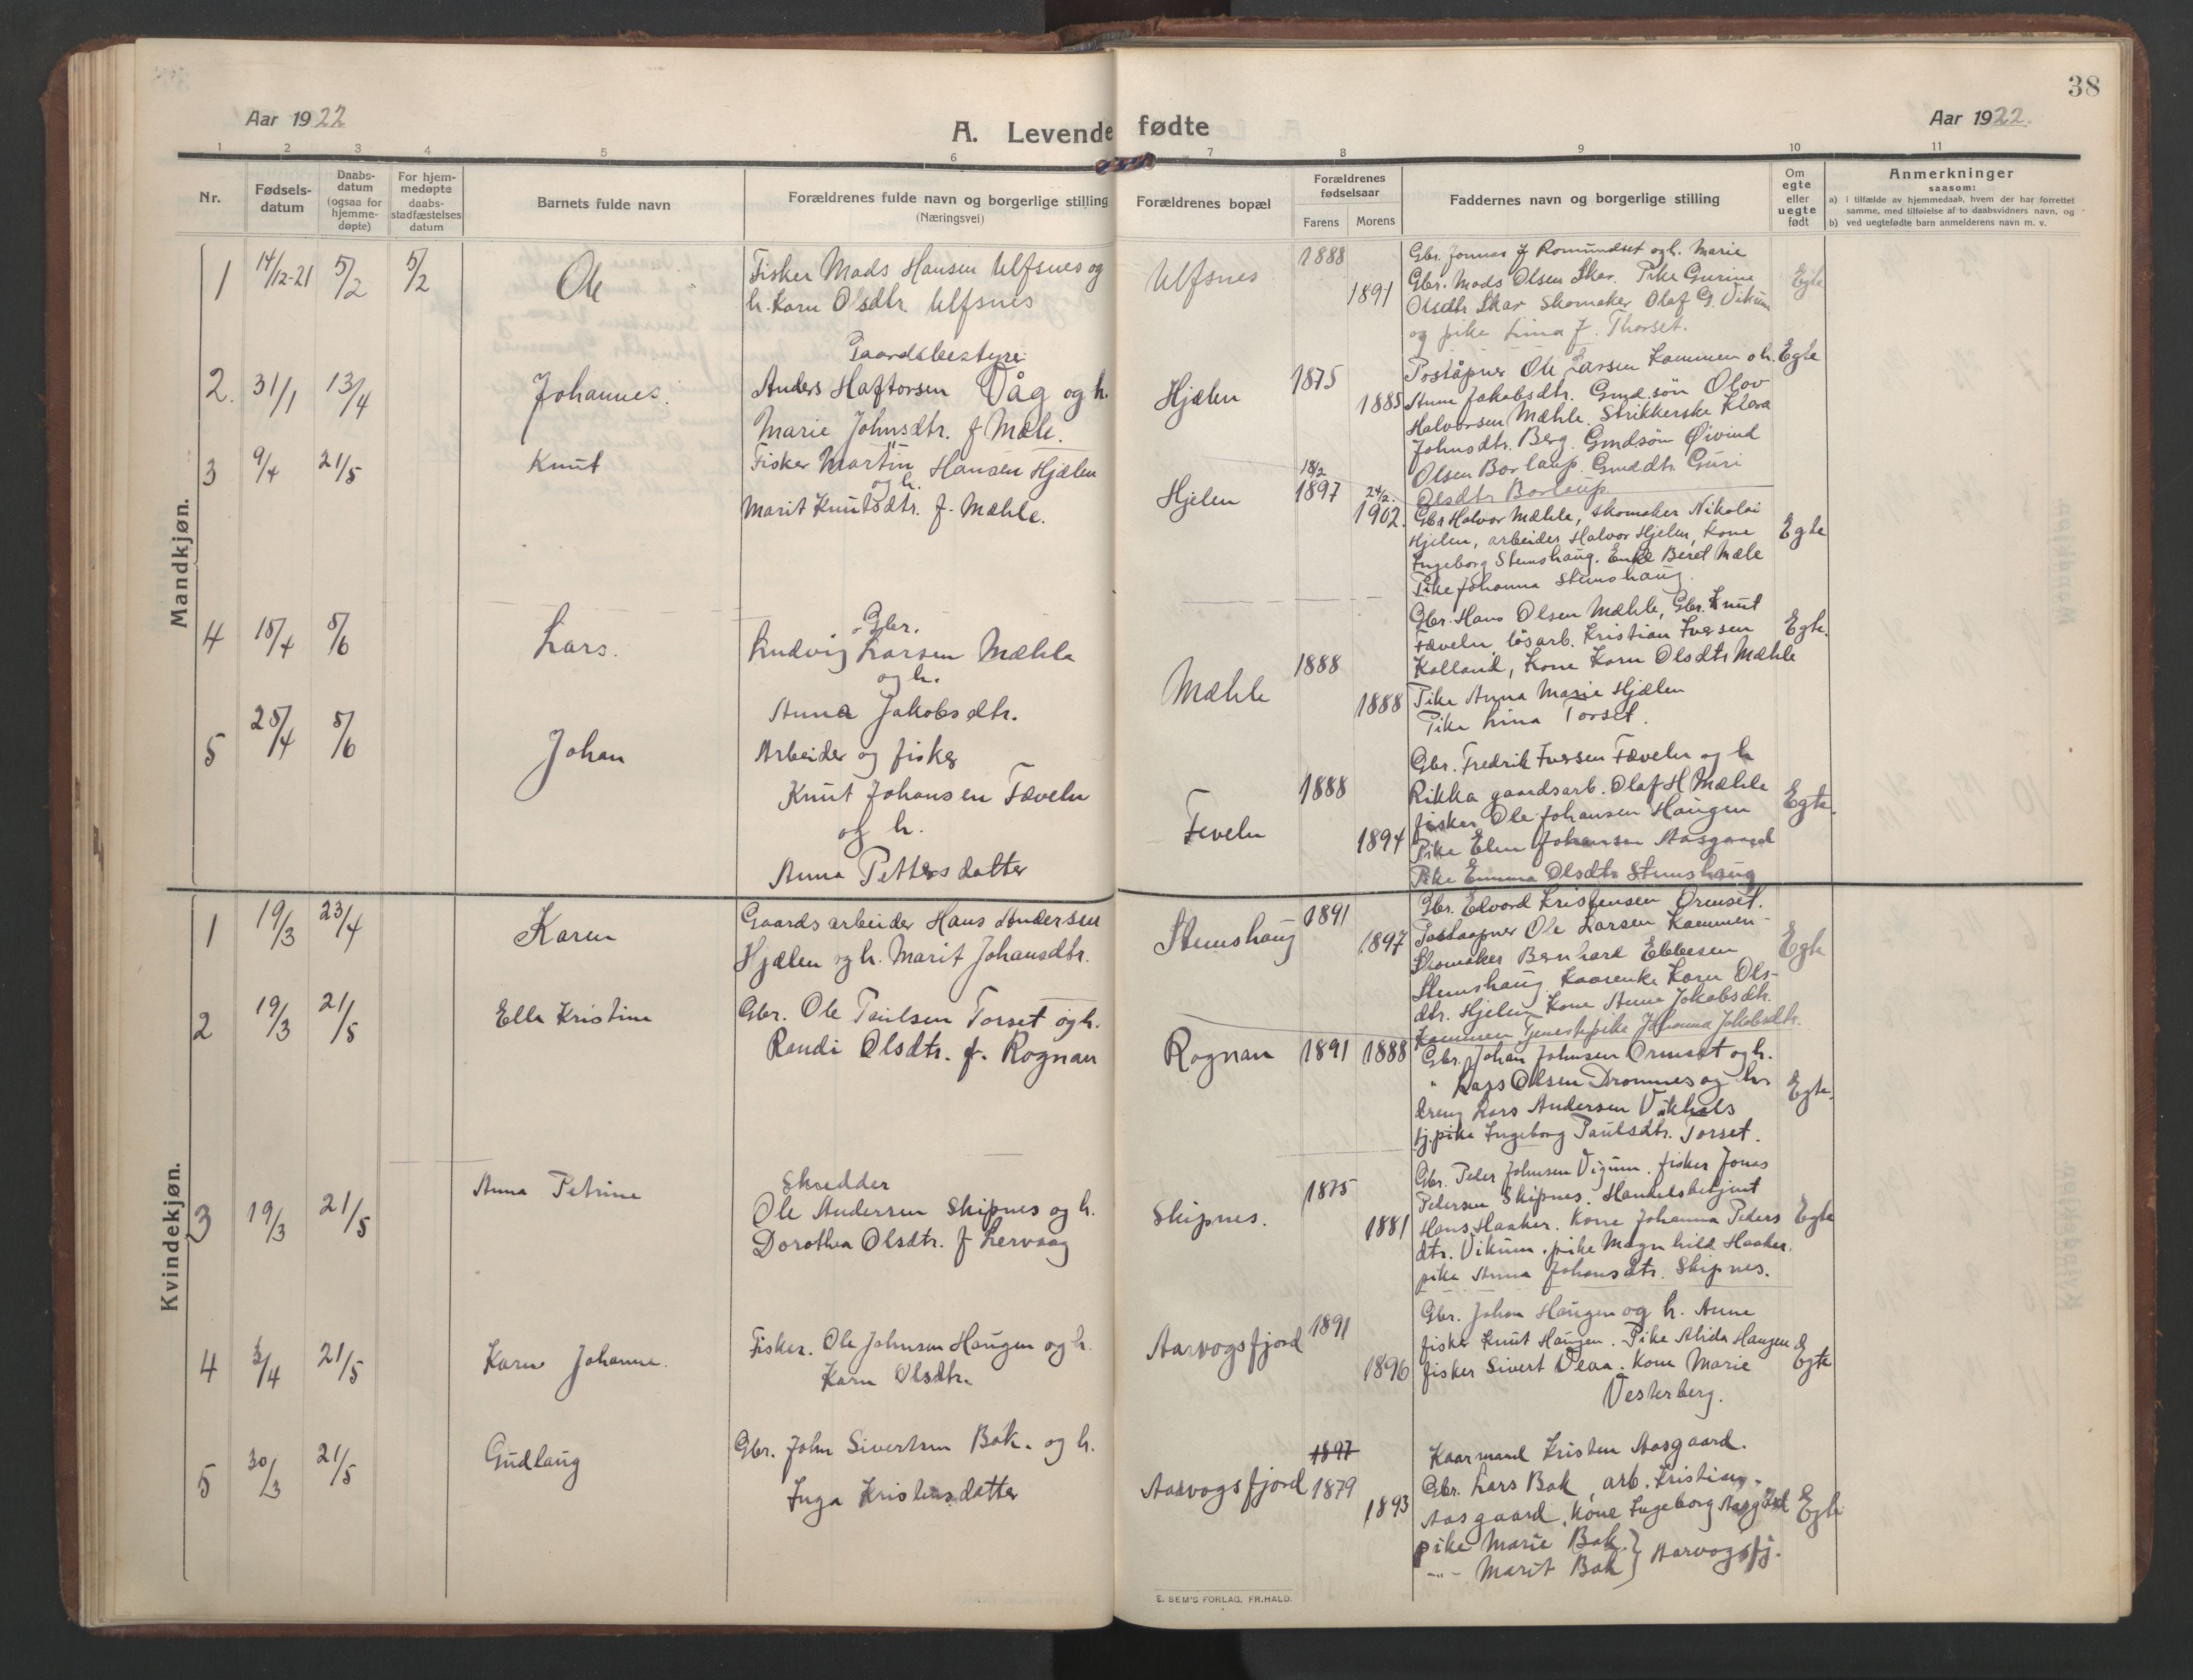 38
Aar 1922
A. Levende fødte
Aar 1922.
1 2 3 4 5 6 7 8 9 10 11
Nr.
Fødsels-
datum
Daabs-
datum
(ogsaa for
hjemme-
døpte)
For hjem-
medøpte
daabs-
stadfæstelses
datum
Barnets fulde navn
Forældrenes fulde navn og borgerlige stilling
(Næringsvei)
Forældrenes bopæl
Forældrenes
fødselsaar
Farens Morens
Faddernes navn og borgerlige stilling
Om
egte
eller
uegte
født
Anmerkninger
saasom:
a) i tilfælde av hjemmedaab, hvem der har forrettet
samme, med tilføielse af to daabsvidners navn, og
b) ved uegtefødte barn anmelderens navn m. v.
Mandkjøn.
1 14/12-21 5/2 5/2 Ole
Fisker Mads Hansen Ulfsnes og
h. Karn Olsdtr. Ulfsnes
Ulfsnes 1888 1891
Gbr. Jonnas J Romundset og h. Marie
Gbr. Mads Olsen Skar. Pike Gurine
Olsdtr Skar Skomaker Olaf G. Vikum
og pike Lina J. Thorset.
Egte
2. 31/1 13/4 Johannes.
Gaardsbestyrer
Anders Haftorsen Våg og h.
Marie Johnsdtr. f Mæle.
Hjælen 1875 1885
Poståpner Ole Larsen Kammen o h.
Anne Jakobsdtr. Gmd.søn Olov
Halvorsen Mæhle. Strikkerske Klara
Johnsdtr. Berg. Gmdsøn Øivind
Olsen Borlaup. Gmddtr. Guri
Olsdtr Borlaup
Egte
3 9/4 21/5 Knut
Fisker Martin Hansen Hjælen
og h.
Marit Knutsdtr. f. Mæhle.
Hjelen 18/2 1897 24/2. 1902.
Gbr Halvor Mæhle, skomaker Nikolai
Hjelen, arbeider Halvor Hjelen, kone
Ingeborg Stemshaug. Enke Beret Mæle
Pike Johanna Stemshaug.
Egte
4 15/4 5/6 Lars.
Gbr.
Ludvig Larsen Mæhle
og h.
Anna Jakobsdtr.
Mæhle 1888 1888
Gbr. Hans Olsen Mæhle, Gbr. Knut
Fæveln, løsarb. Kristian Iversen
Kalland, Kone Karn Olsdtr Mæhle
Pike Anna Marie Hjælen
Pike Lina Torset.
Egte.
5 25/4 5/6 Johan
Arbeider og fisker
Knut Johansen Fæveln
og h.
Anna Pettersdatter
Feveln 1888 1894
Gbr. Fredrik Iversen Fæveln og h
Rikka gaardsarb. Olaf H Mæhle
fisker Ole Johansen Haugen
Pike Elen Johansen Aasgaard
Pike Emma Olsdtr Stemshaug
Egte.
Kvindekjøn.
1 19/3 23/4 Karen
Gaardsarbeider Hans Andersen
Hjælen og h. Marit Johansdtr.
Stemshaug 1891 1897
Gbr. Edvard Kristensen Ormset.
Postaapner Ole Larsen Kammen
Skomaker Bernhard Ebbesen
Stemshaug Kaarenke Karn Ols-
dtr. Hjelen Kone Anne Jakobsdtr.
Kammen Tjenestepike Johanna Jakobsdtr.
Egte
2 19/3 21/5 Ella Kristine
Gbr. Ole Paulsen Torset og h.
Randi Olsdtr. f. Rognan
Rognan 1891 1888
Gbr. Johan Johnsen Ormset og h.
" Lars Olsen Drommes og h.
dreng Lars Andersen Vikhals
tj.pike Ingeborg Paulsdtr. Torset.
Egte.
3 19/3 21/5 Anna Petrine
Skredder
Ole Andersen Skipnes og h.
Dorothea Olsdtr. f Lervaag
Skipnes. 1875 1881
Gbr. Peder Johnsen Vigum. fisker Jonas
Pedersen Skipnes. Handelsbetjent
Hans Haaker. Kone Johanna Peders
dtr. Vikum. pike Magnhild Haaker.
pike Anna Johansdtr. Skipnes.
Egte
4 3/4 21/5 Karen Johanne.
Fisker. Ole Johnsen Haugen og h.
Karn Olsdtr.
Aarvogsfjord 1891 1896
Gbr. Johan Haugen og h. Anne
fisker Knut Haugen. Pike Alida Haugen
fisker Sivert Vlaa. Kone Marie
Vesterberg.
Egte
5 30/3 21/5 Gudlaug
Gbr. John Sivertsen Bak. og h.
Inga Kristensdatter
Aarvogsfjord 1897 1879 1893
Kaarmand Kristen Aasgaard.
Gbr. Lars Bak, arb. Kristian
Aasgaard, Kone Ingeborg Aasgård
pike Marie Bak } Aarvogsfj.
-"- Marit Bak
Egte
E. SEM'S FORLAG, FR.HALD.